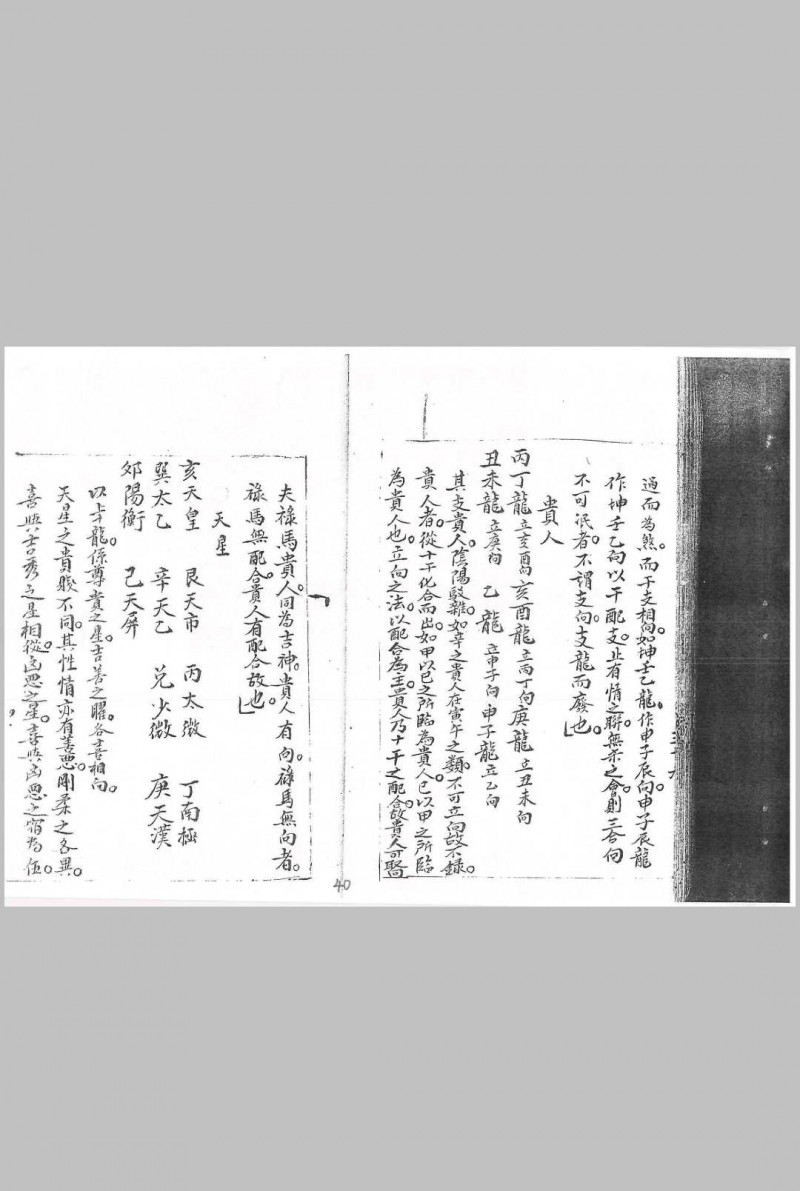 過而為煞。而干支相向。如坤壬乙龍。作申子辰向。申子辰龍
作坤壬乙向。以干配支。止有情之聯。無柔之會。則三合向
不可泯者。不謂支向。支龍而廢也。
貴人
丙丁龍立亥酉向 亥酉龍立丙丁向 庚龍立丑未向
丑未龍立庚向 乙龍立申子向 申子龍立乙向
其支貴人。陰陽駁雜。如辛之貴人在寅午之類。不可立向。故不錄。
貴人者。從十干化合而出。如甲以己之所臨為貴人。己以甲之所臨
為貴人也。立向之法。以配合為主。貴人乃十干之配合。故貴人可取向
夫祿馬貴人。同為吉神。貴人有向。祿馬無向者。
祿馬無配合。貴人有配合故也。
天星
亥天皇 艮天市 丙太微 丁南極
巽太乙 辛天乙 兌少微 庚天漢
卯陽衡 己天屏
以上龍。係尊貴之星。吉善之曜。各喜相向。
天星之貴賤不同。其性情亦有善惡。剛柔之各異。
喜與吉秀之星相從。凶惡之星。喜與凶惡之宿為伍。
40